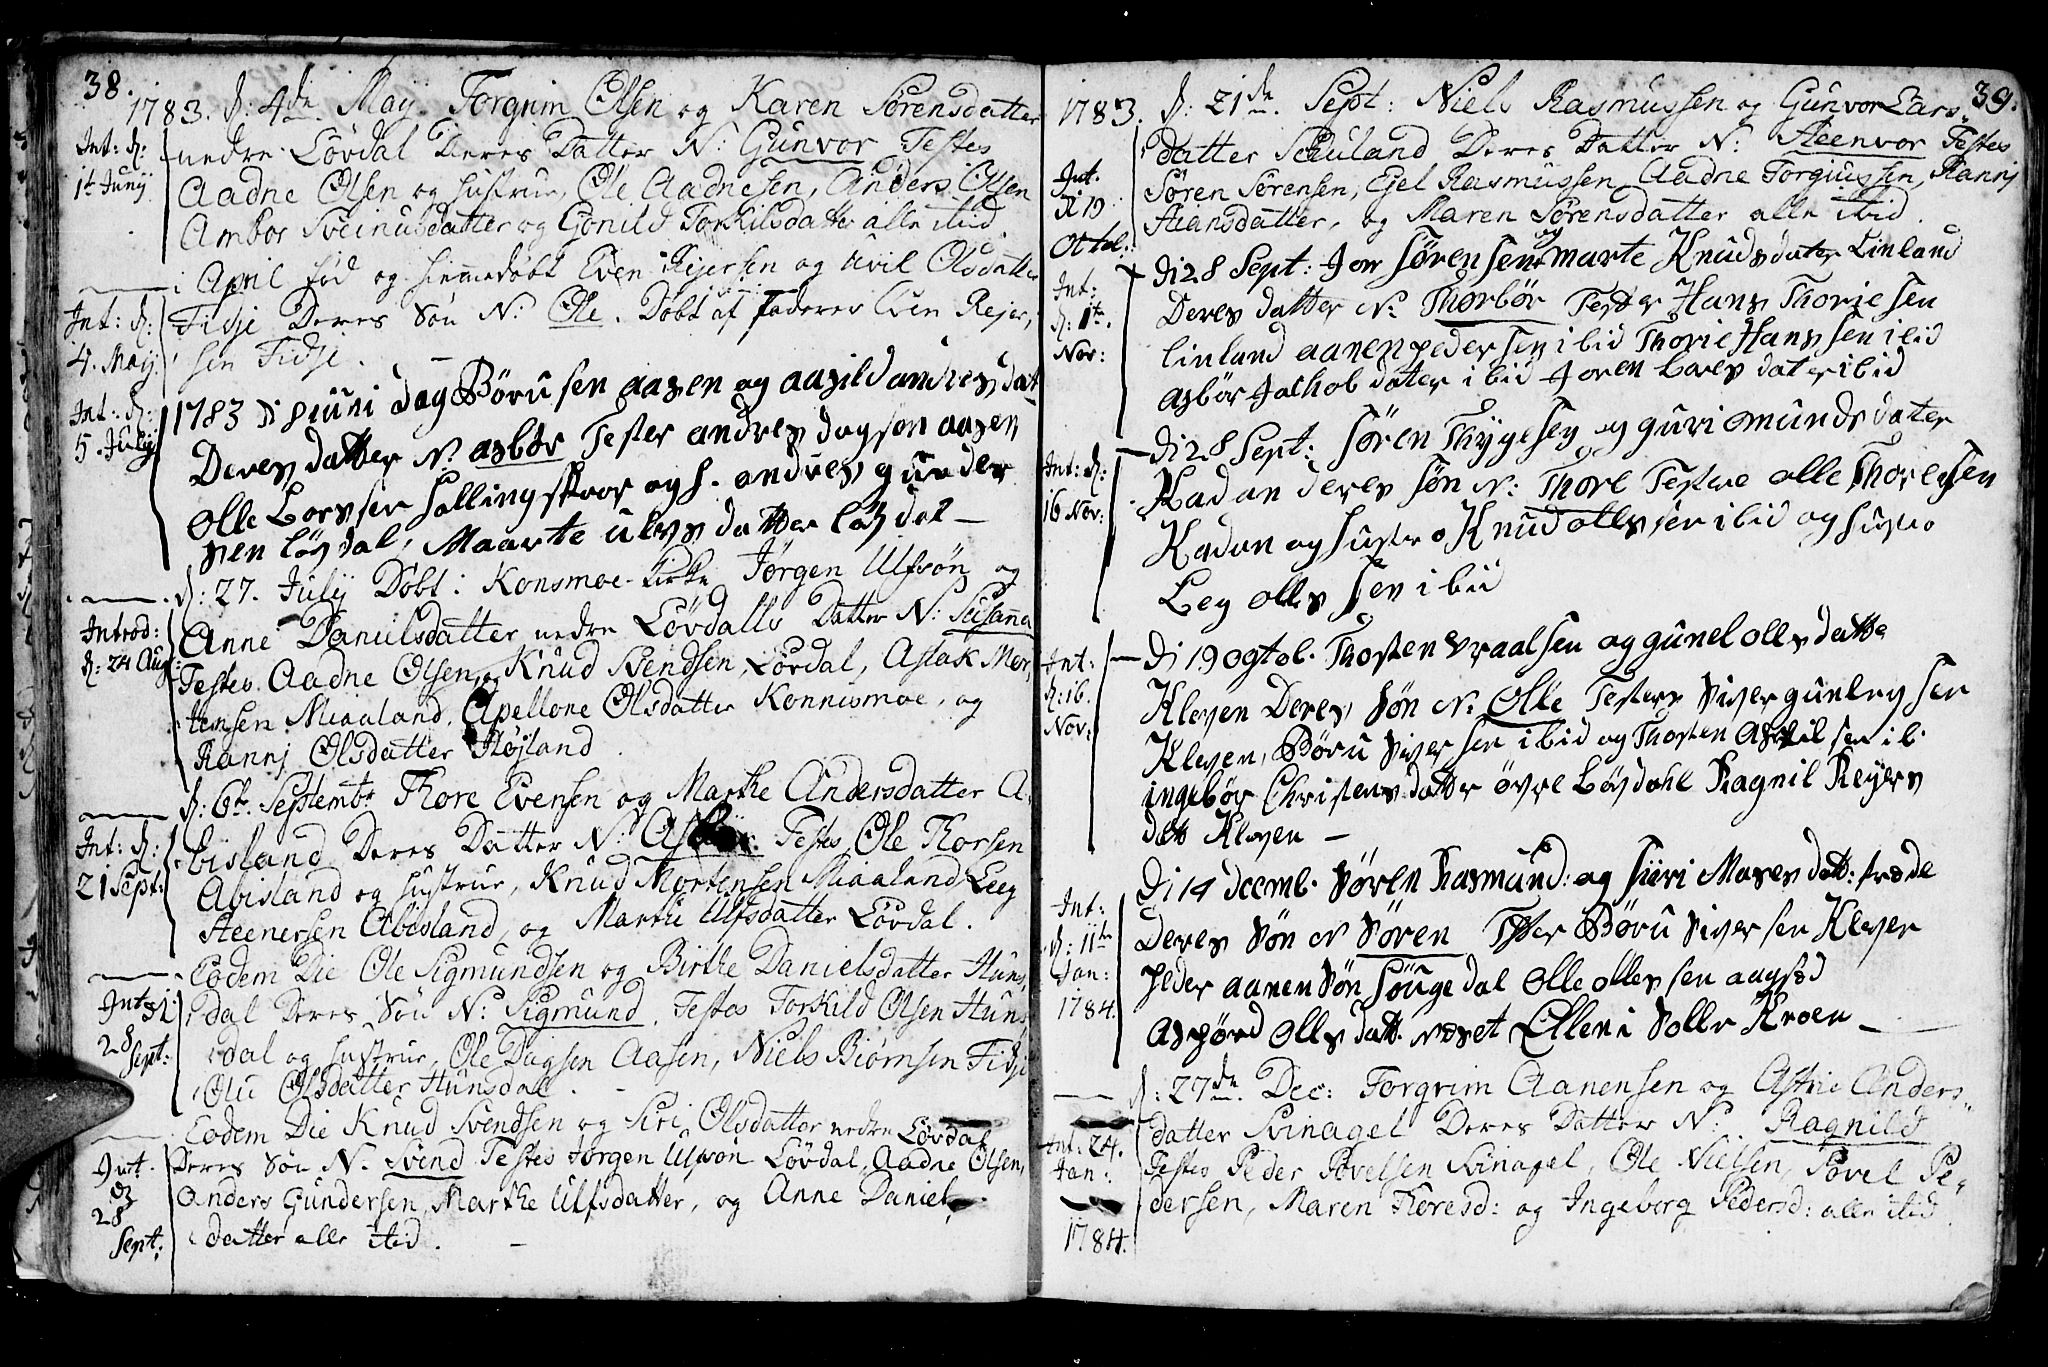 38.
1783. d: 4de May. Torgrim Olsen og Karen Sørensdatter
nedre Lövdal Deres Datter N: Gunvor Testes
Int: d:
1te Junij
Aadne Olsen og hustrue, Ole Aadnesen, Anders Olsen
Ambor Sveinusdatter og Gonild Torkilsdatter alle ibid.
i April fød og hiemmedøbt Even Rejersen og Avil Olsdatter
Int: d:
4. May.
Fidje Deres Sön N: Ole. Döbt af Faderen Even Rejer,
sen Fidje.
Int: d:
5. Julij
1783 d 8 iuni dag Börusen aasen og aasild andres dat
Deres datter N. asbör Tester andres dagsen aasen
olle Lorssen hallingskor og h. andres gunder
sen lösdal, Maarte ulvsdatter lösdal —
d: 27. Julij Döbt i Konsmoe Kirke Jørgen Ulfsön og
Introd:
d: 24 Aug:
Anne Danielsdatter nedre Lövdalls Datter N: Susanna
Testes. Aadne Olsen og Knud Svendsen Lövdal, Aslak Mor,
tensen Miaaland, Apellone Olsdatter Konnismoe, og
Rannj Olsdatter Højland.
d: 6te Septembr Thore Evensen og Marthe Andersdatter A,
Int: d:
21 Sept:
bisland Deres Datter N: Asbör. Testes, Ole Thorsen
Abisland og hustrue, Knud Mortensen Miaaland, Leeg
Steenersen Abisland, og Marthe Ulfsdatter Lövdal.
Eodem Die Ole Sigmundsen og Birthe Danielsdatter Huns,
Int: d:
28
Sept:
dal Deres Sön N: Sigmund. Testes Torkild Olsen Huns
dal og hustrue, Ole Dagsen Aasen, Niels Biörnsen Fidje
Olu Olsdatter Hunsdal.
Eodem Die Knud Svendsen og Siri Olsdatter nedre Lövdal
Int.
d:
28
Sept:
Deres Sön N. Svend Testes Jörgen Ulfsön Lövdal, Aadne Olsen,
Anders Gundersen, Marthe Ulfsdatter, og Anne Daniels
datter alle ibid.
39.
1783. d: 21de Sept: Niels Rasmussen og Gunvor Lars,
datter Schuland Deres Datter N: Steenvor Testes
Int.
d 19
Octob:
Søren Sørensen, Egel Rasmussen, Aadne Torgiussen, Rannj
Hansdatter, og Maren Sørensdatter alle ibid.
Int:
d: 1te
Nov:
di 28 Sept: Jon sørensen og marte Knudsdater Linland
Deres datter N: Thorbör Tester Hans Thoriesen
linland aanen pedersen ibid Thorie Hanssen ibid
asbör Jakhobdater ibid Joren Loresdater ibid
Int: d:
16 Nov:
di 28 Sept: sören Thygesen og guri omundsdater
Kadan deres sön N: Thore Testere olle Thoresen
Kadan og hustro Knud ollssen ibid og hustro
Leg ollssen ibid
Int:
d: 16.
Nov:
di 19 ogtob. Thosten Vraalsen og gunel ollsdatte
Kleven Deres sön N: Olle Testere Siver gunlegsen
Kleven, Böru Siversen ibid og Thosten Askilsen ib.
ingebör Christensdatter övre Lösdahl Ragnil Reyers
datt Kleven —
Int:
d: 11te
Jan:
1784.
di 14 decmb. sören Rasmund: og siiri Moses datt: træde
Deres sön N Sören Tester Böru Siversen Kleven
peder aanensön höugedal olle ollessen aagsød
Aspörd ollsdatt. næset Ellen i Solle Kroen —
d: 27de Dec: Torgrim Aanensen og Astrie Anders,
Int. 24.
Jan:
1784.
datter Svinagel Deres Datter N: Ragnild
Testes Peder Povelsen Svinagel, Ole Nielsen, Povel Pe,
dersen, Maren Thoresd: og Ingeborg Pedersd: alle ibid